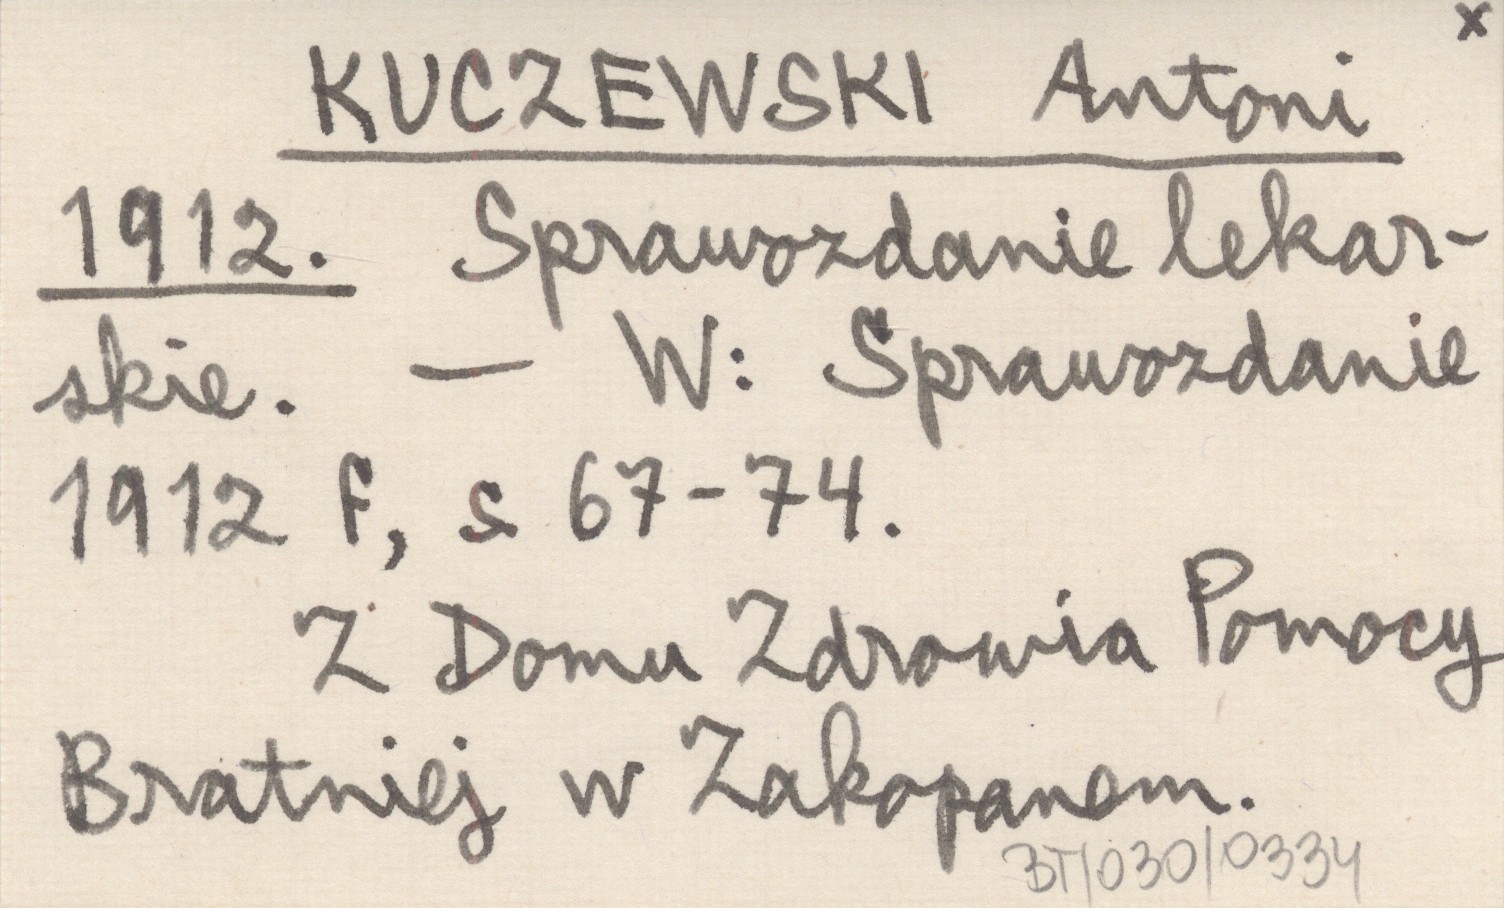 x
KUCZEWSKI Antoni
1912. Sprawozdanie lekar-
skie. — W: Sprawozdanie
1912 f, s 67-74.
Z Domu Zdrowia Pomocy
Bratniej w Zakopanem.
BT/030/0334